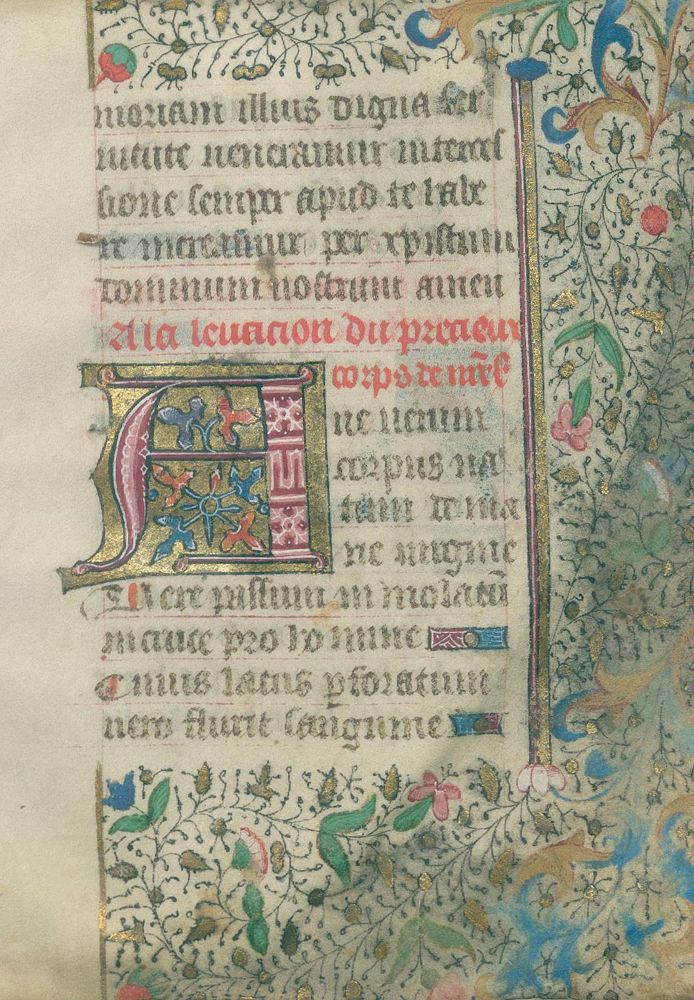 moriam illius digna ser
uitute ueneramur interces
sione semper apud te labe
re mereamur per xpistum
dominum nostrum amen
A la leuacion du precieux
corps de nre s
Aue uerum
corpus na
tum de ma
rie uirgine
Uere passum in molatū
in cruce pro homine
Cuius latus pforatum
uero fluxit sanguine